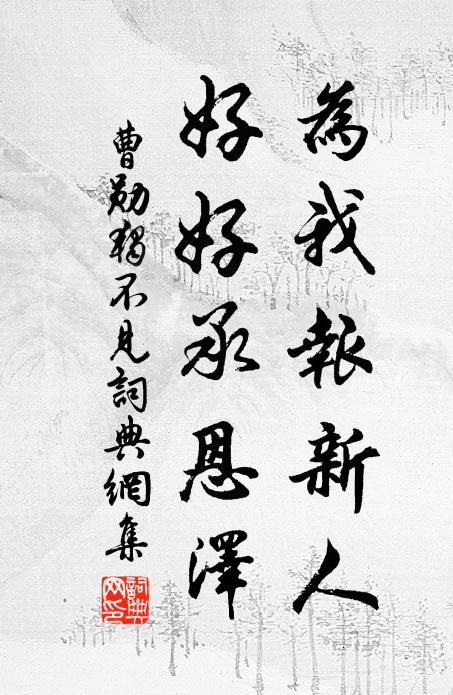 為我報新人
好好承恩澤
曹勛獨不見詞典網集
詞典
网印